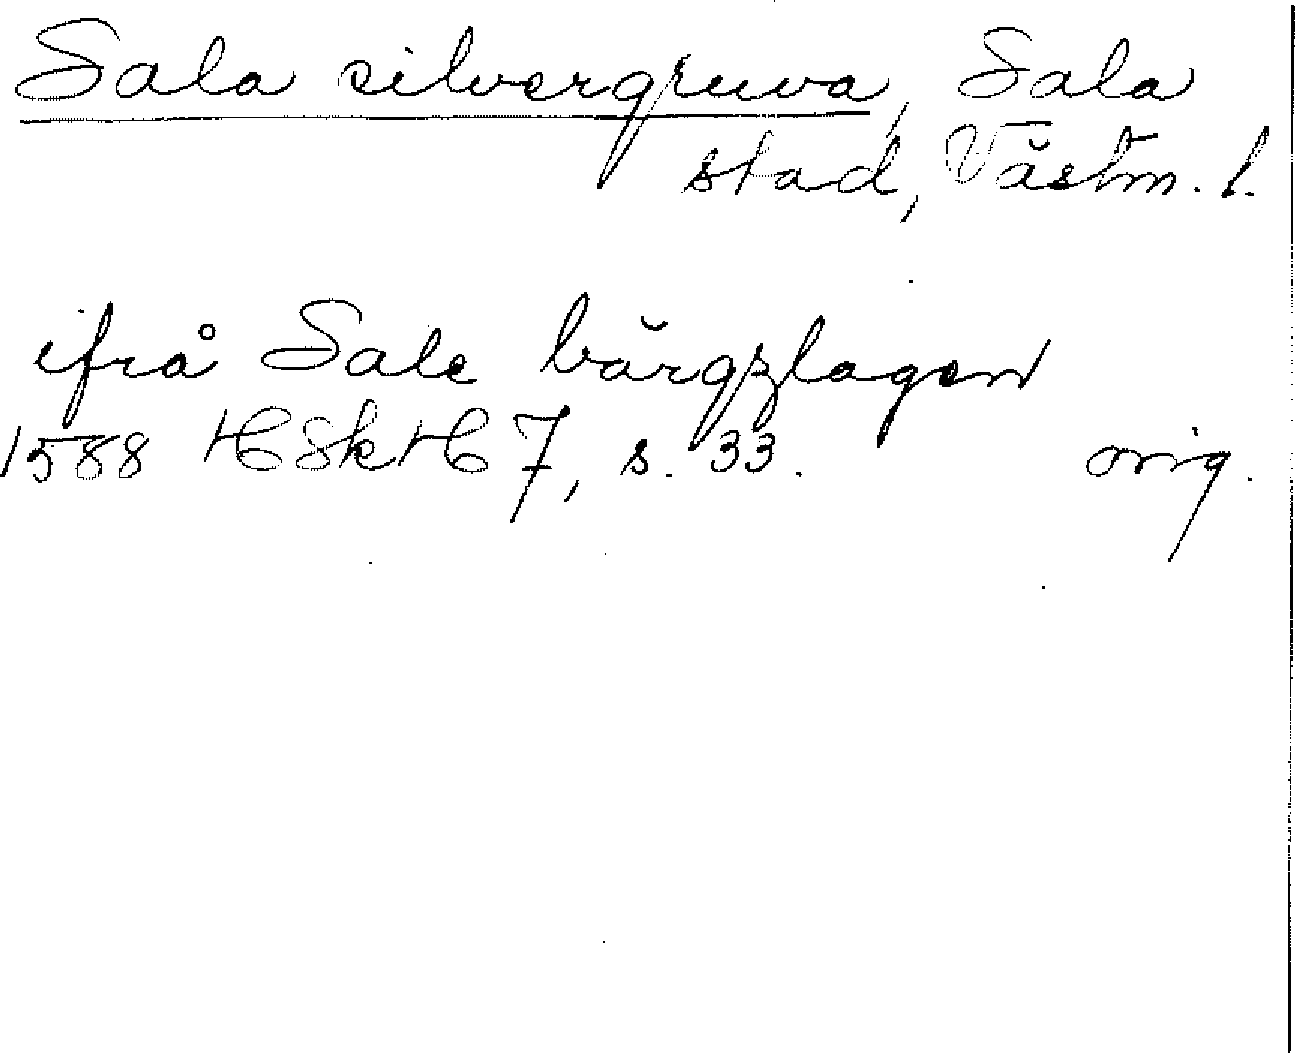 Sala silvergruva, Sala
stad, Västm. l.
ifrå Sale bärgzlagen
1588 HSkH 7, s. 33. orig.